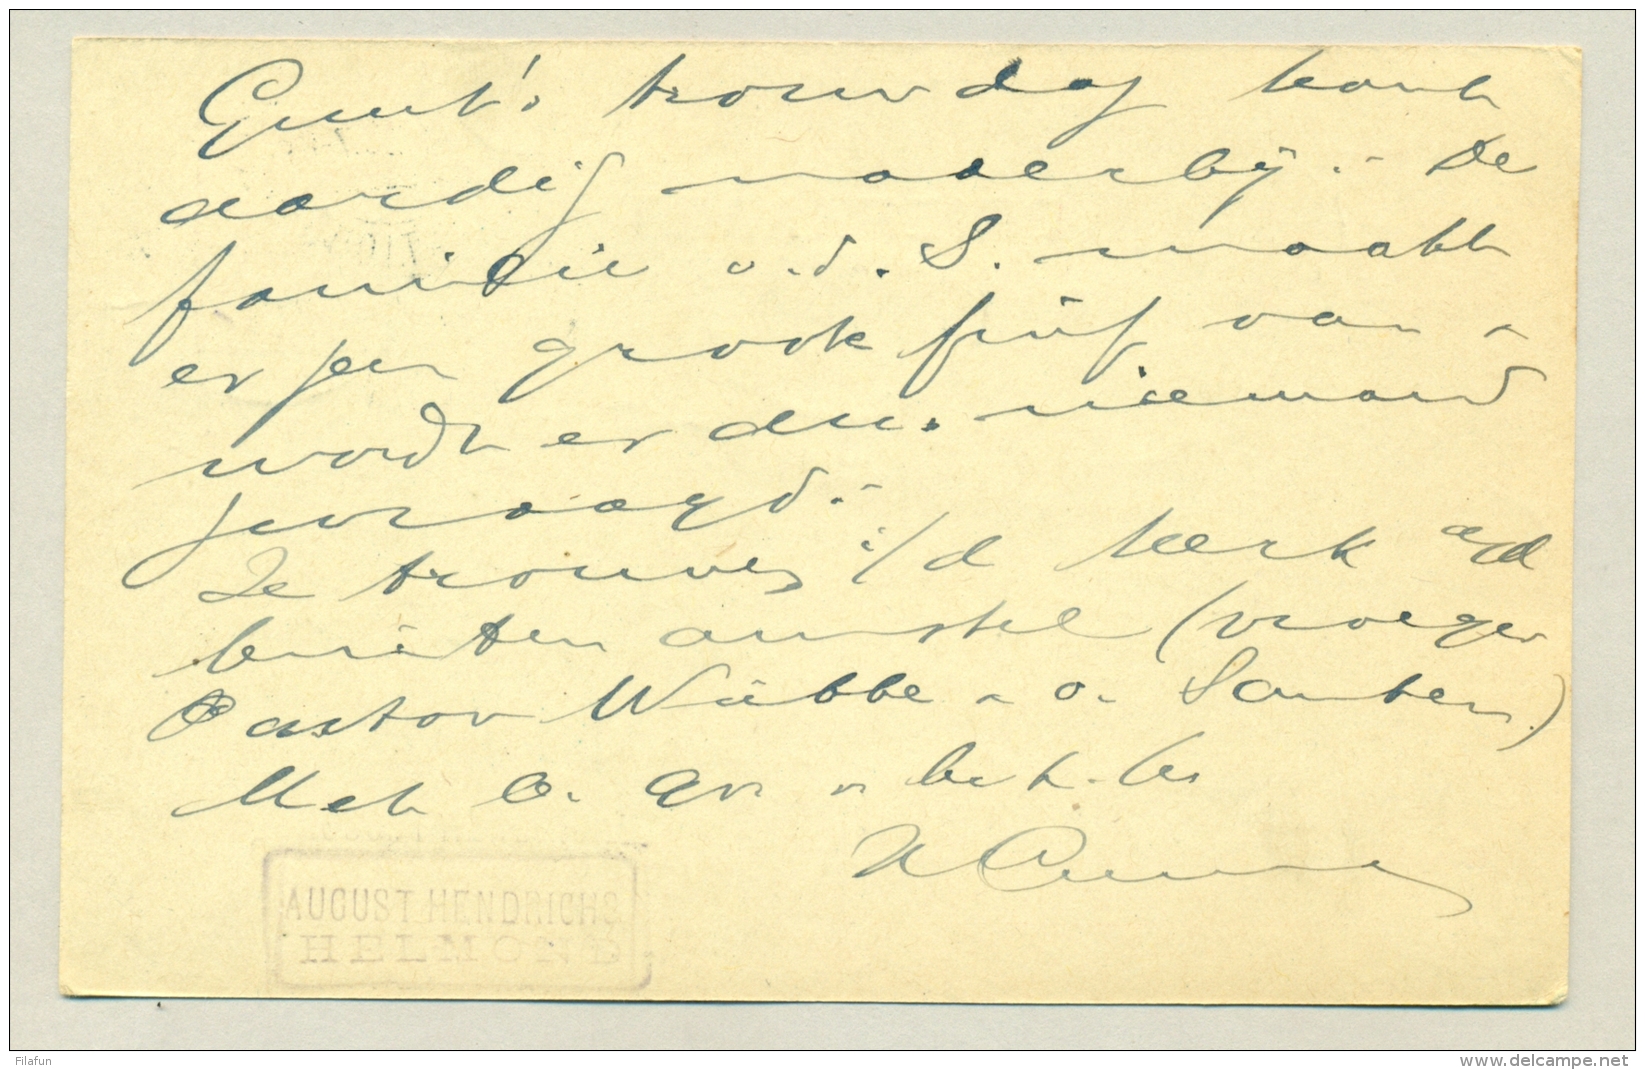 Guust's trouwdag komt
aardig naderbij. - De
familie v.d. S. maakt
er geen groote fuif van -
wordt er dus niemand
gevraagd. -
Ze trouwen i/d kerk a/d
buiten amstel (vroeger
Pastor Wübbe - v. Santen)
Met b. gr.
AUGUST HENDRICHS
HELMOND
Filafun
www.delcampe.net